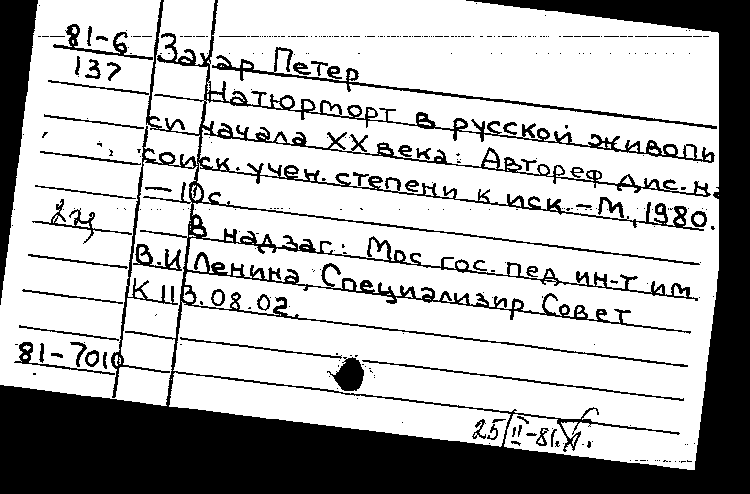 81-6
137
Захар Петер
Натюрморт в русской живопи
си начала XX века: Автореф дис. на
соиск. учен. степени к. иск. – М., 1980.
– 10 с.
2 щ
В надзаг.: Мос гос. пед. ин-т им.
В.И. Ленина, Специализир. Совет
К 113.08.02.
81-7010
25/II-81.